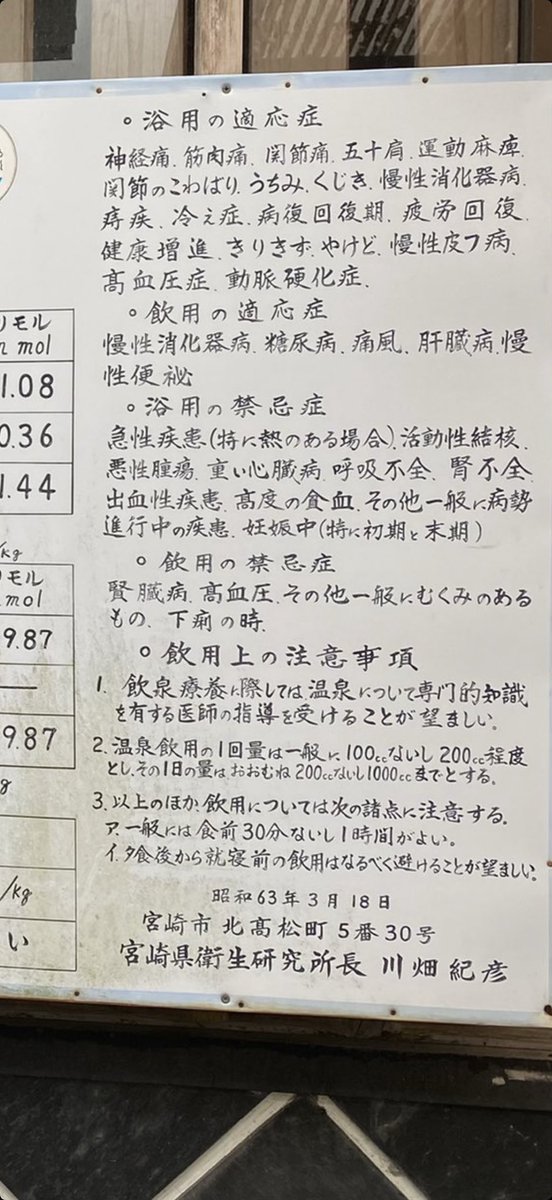 リモル
n mol
1.08
0.36
1.44
/kg
リモル
mol
9.87
9.87
g
/kg
い
○ 浴用の適応症
神経痛、筋肉痛、関節痛、五十肩、運動麻痺、
関節のこわばり、うちみ、くじき、慢性消化器病、
痔疾、冷え症、病復回復期、疲労回復、
健康増進、きりきず、やけど、慢性皮フ病、
高血圧症、動脈硬化症、
○ 飲用の適応症
慢性消化器病、糖尿病、痛風、肝臓病、慢
性便祕
○ 浴用の禁忌症
急性疾患(特に熱のある場合)、活動性結核、
悪性腫瘍、重い心臓病、呼吸不全、腎不全、
出血性疾患、高度の貧血、その他一般に病勢
進行中の疾患、妊娠中(特に初期と末期)
○ 飲用の禁忌症
腎臓病、高血圧、その他一般にむくみのある
もの、下痢の時、
○ 飲用上の注意事項
1. 飲泉療養に際しては温泉について専門的知識
を有する医師の指導を受けることが望ましい。
2. 温泉飲用の1回量は一般に100ccないし200cc程度
とし、その1日の量はおおむね200ccないし1000ccまでとする。
3. 以上のほか、飲用については次の諸点に注意する。
ア. 一般には食前30分ないし1時間がよい。
イ. 夕食後から就寝前の飲用はなるべく避けることが望ましい。
昭和63年3月18日
宮崎市北髙松町5番30号
宮崎県衛生研究所長 川畑紀彦